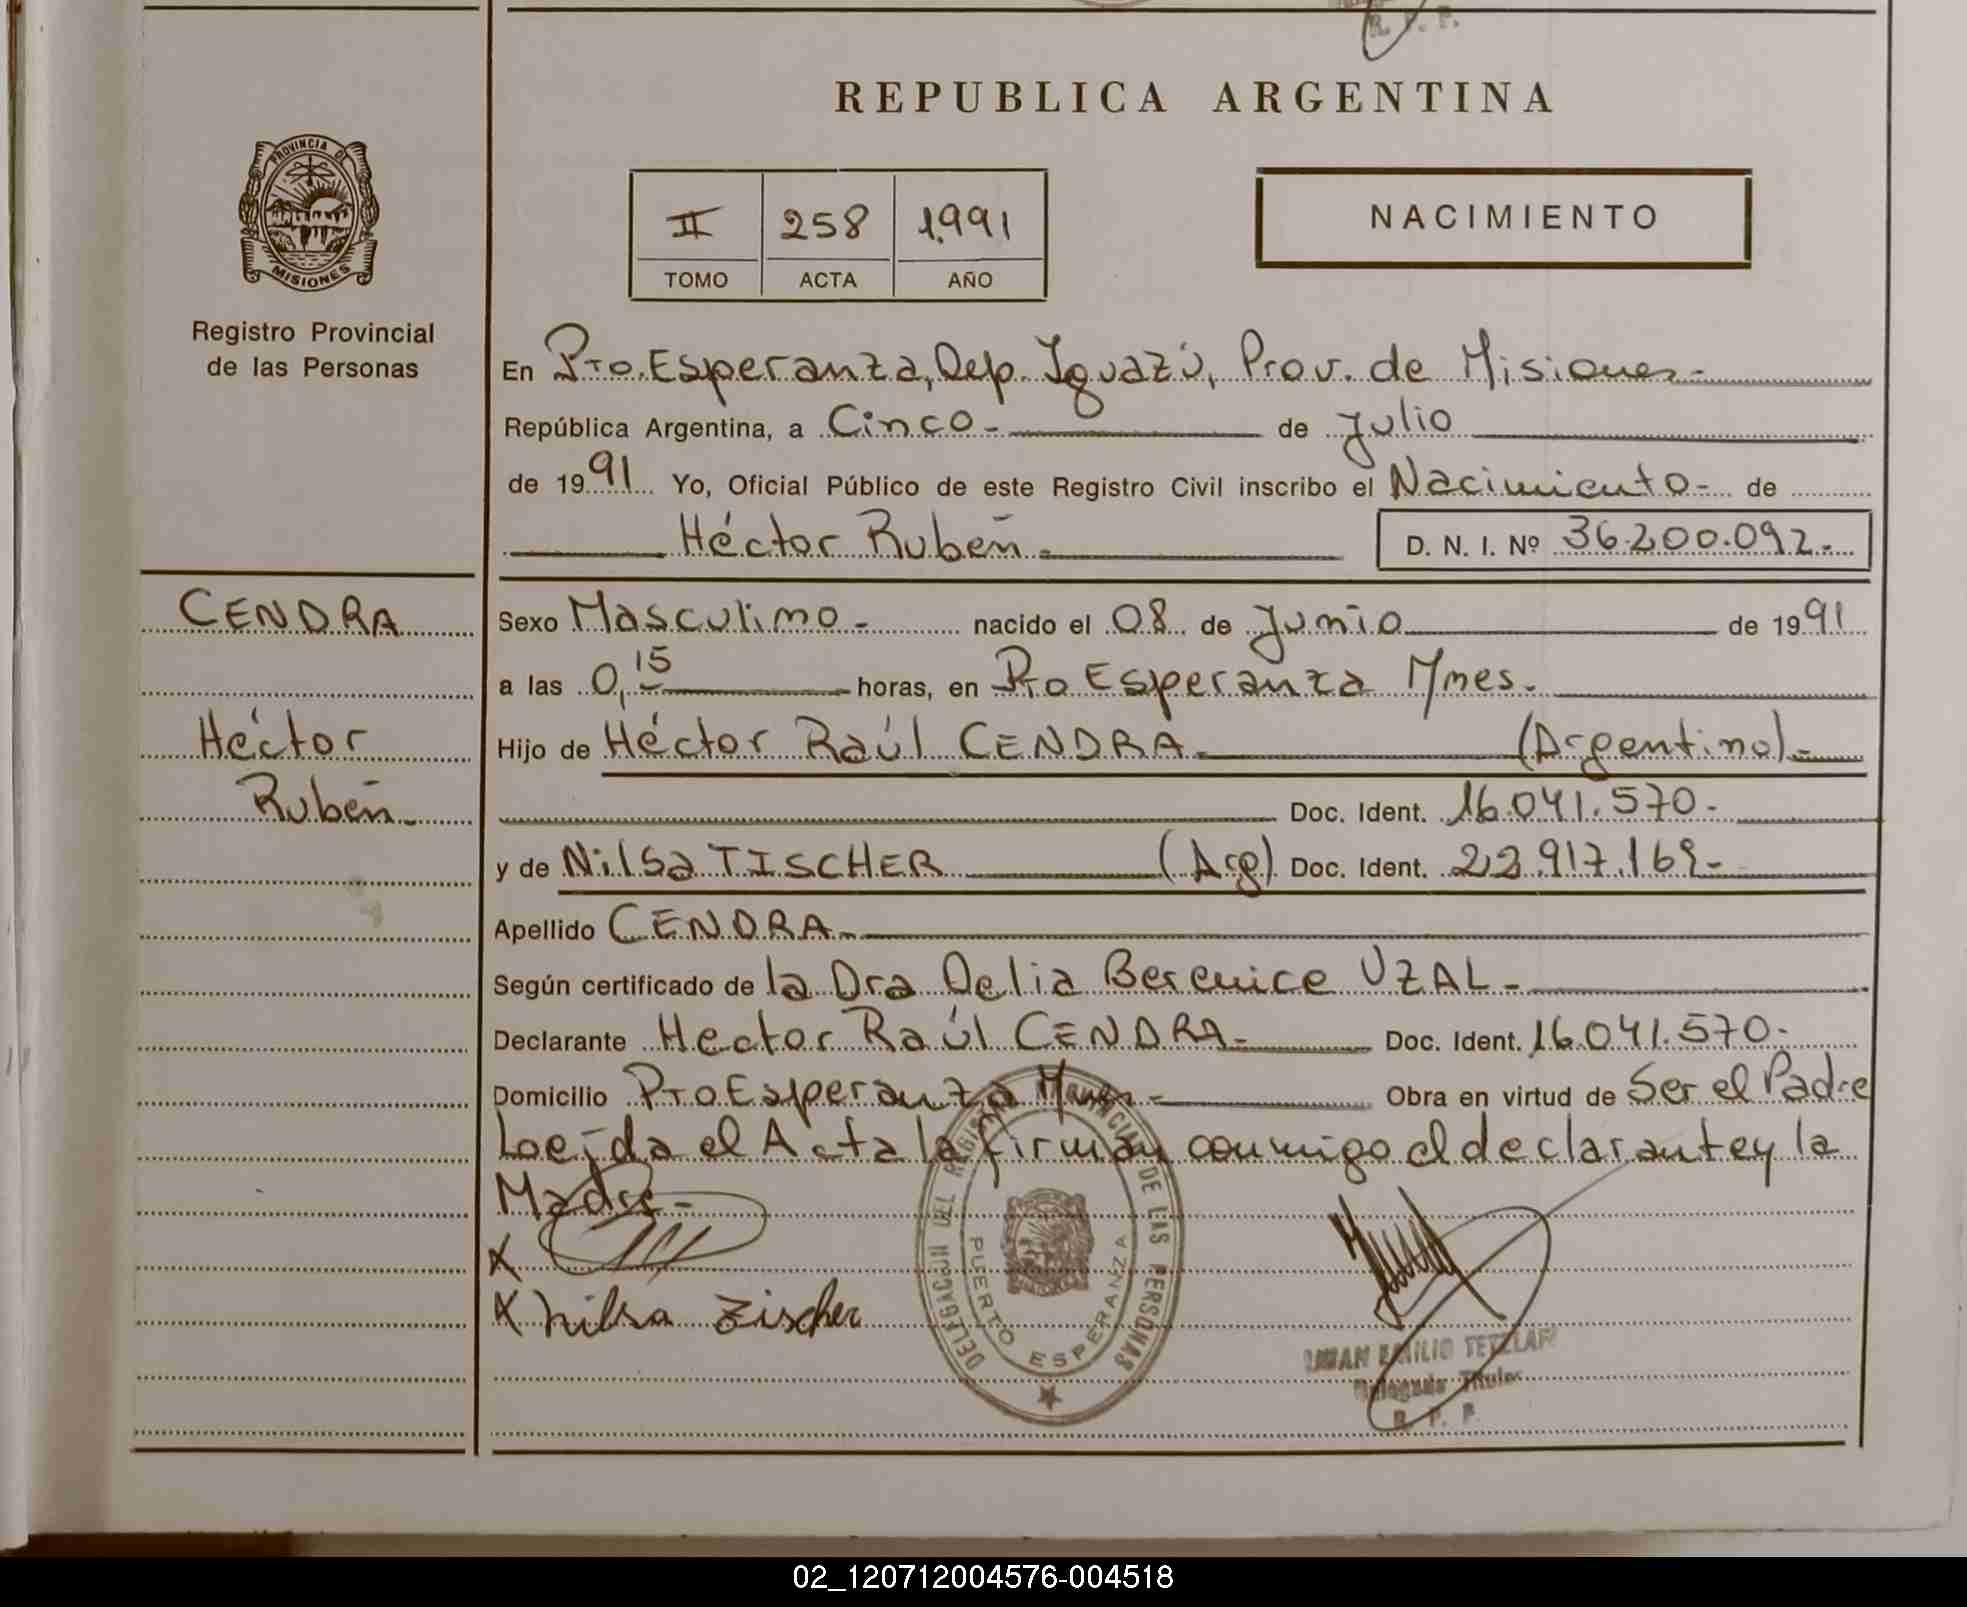 R. P. P.
REPUBLICA ARGENTINA
PROVINCIA DE
MISIONES
Registro Provincial
de las Personas
II 258 1991
TOMO ACTA AÑO
NACIMIENTO
En Pto. Esperanza, Dep. Iguazú, Prov. de Misiones-
República Argentina, a Cinco- de Julio
de 1991 Yo, Oficial Público de este Registro Civil inscribo el Nacimiento- de
Héctor Rubén- D. N. I. Nº 36.200.092.-
CENDRA
Héctor
Rubén-
Sexo Masculino- nacido el 08 de Junio de 1991
a las 0,15 horas, en Pto Esperanza Mnes.
Hijo de Héctor Raúl CENDRA- (Argentino)-
Doc. Ident. 16.041.570-
y de Nilsa TISCHER (Arg) Doc. Ident. 22.917.169-
Apellido CENDRA-
Según certificado de la Dra Delia Berenice UZAL-
Declarante Hector Raúl CENDRA- Doc. Ident. 16.041.570-
Domicilio Pto Esperanza Mnes- Obra en virtud de Ser el Padre
Leída el Acta la firman conmigo el declarante y la
Madre-
X
X Nilsa Tischer
DELEGACION DEL REGISTRO PROVINCIAL DE LAS PERSONAS
PUERTO ESPERANZA
EMILIO
Delegado Titular
R. P. P.
02_120712004576-004518